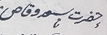 حضرت سعد وقاص